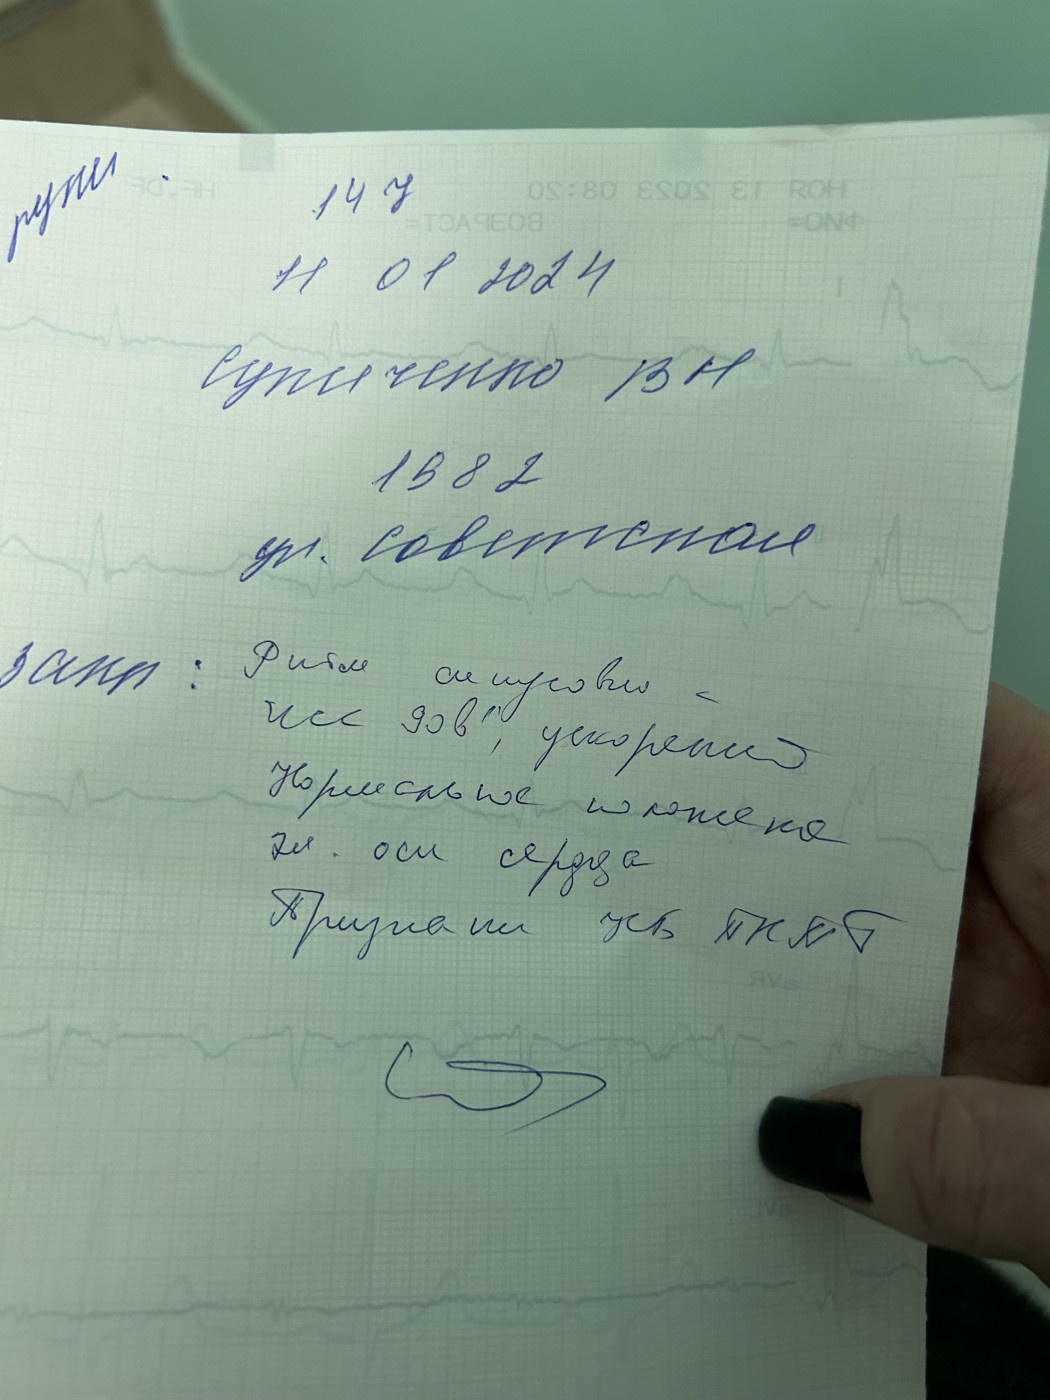 147
11 01 2024
Супиченко ВН
1982
ул. Советская
Закл: Ритм синусовый с
ЧСС 90 в 1', ускоренный
Нормальное положение
эл. оси сердца
Признаки НБ ПНПГ
НОЯ 13 2023 08:20
ФИО= ВОЗРАСТ=
I
aVR
aVL